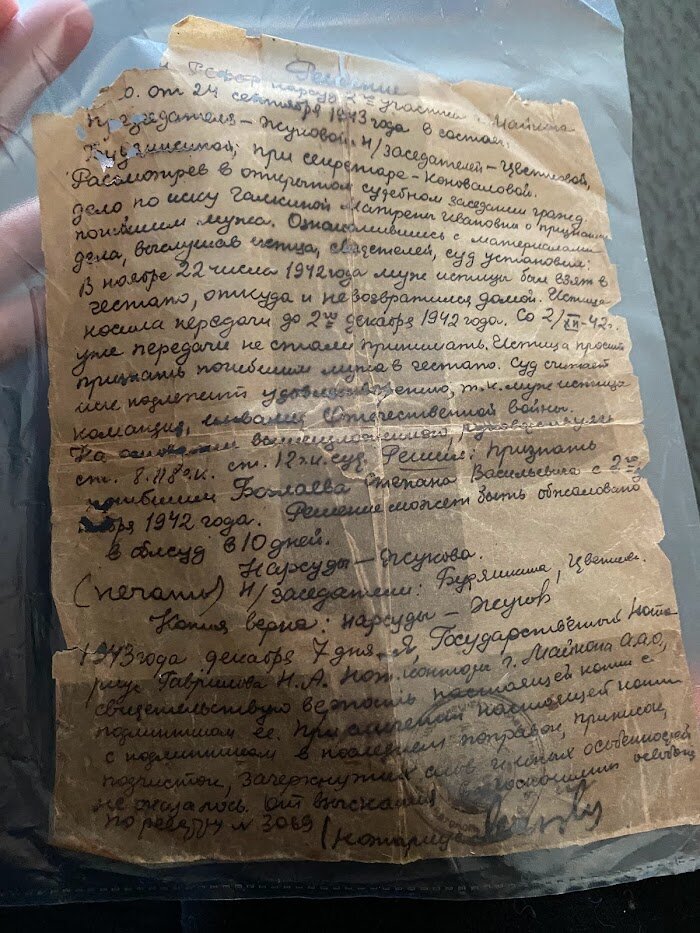 Решение
РСФСР нарсуд 2го участка г. Майкопа
от 24 сентября 1943 года в составе:
Председателя – Жуковой н/заседателей – Цветковой,
при секретаре – Коноваловой.
Рассмотрев в открытом судебном заседании гражд.
дело по иску Галкиной Матрены Ивановны о признании
погибшим мужа. Ознакомившись с материалами
дела, выслушав истца, свидетелей, суд установил:
В ноябре 22 числа 1942 года муж истицы был взят в
гестапо, откуда и не возвратился домой. Истица
носила передачи до 2го декабря 1942 года. Со 2/XII-42 г.
уже передачи не стали принимать. Истица просит
признать погибшим мужа в гестапо. Суд считает
иск подлежит удовлетворению, т.к. муж истицы
Отечественной войны.
На основании вышеизложенного, руководствуясь
ст. ст. 12 суд Решил: Признать
погибшим Степана Васильевича с 2го
1942 года. Решение может быть обжаловано
в облсуд в 10 дней.
Нарсудья – Жукова.
(печать) н/заседатели:
Копия верна: нарсудья – Жуков
1943 года декабря 7 дня. Я, Государственный Нота
риус Гаврилова Н.А. Нот. конторы г. Майкопа А.А.О,
свидетельствую верность настоящей копии с
подлинником ее. При сличении настоящей копии
с подлинником в последнем поправок, приписок,
подчисток, зачеркнутых слов и иных особенностей
не оказалось. От взыскания госпошлины
По реестру № 3069
(Нотариус